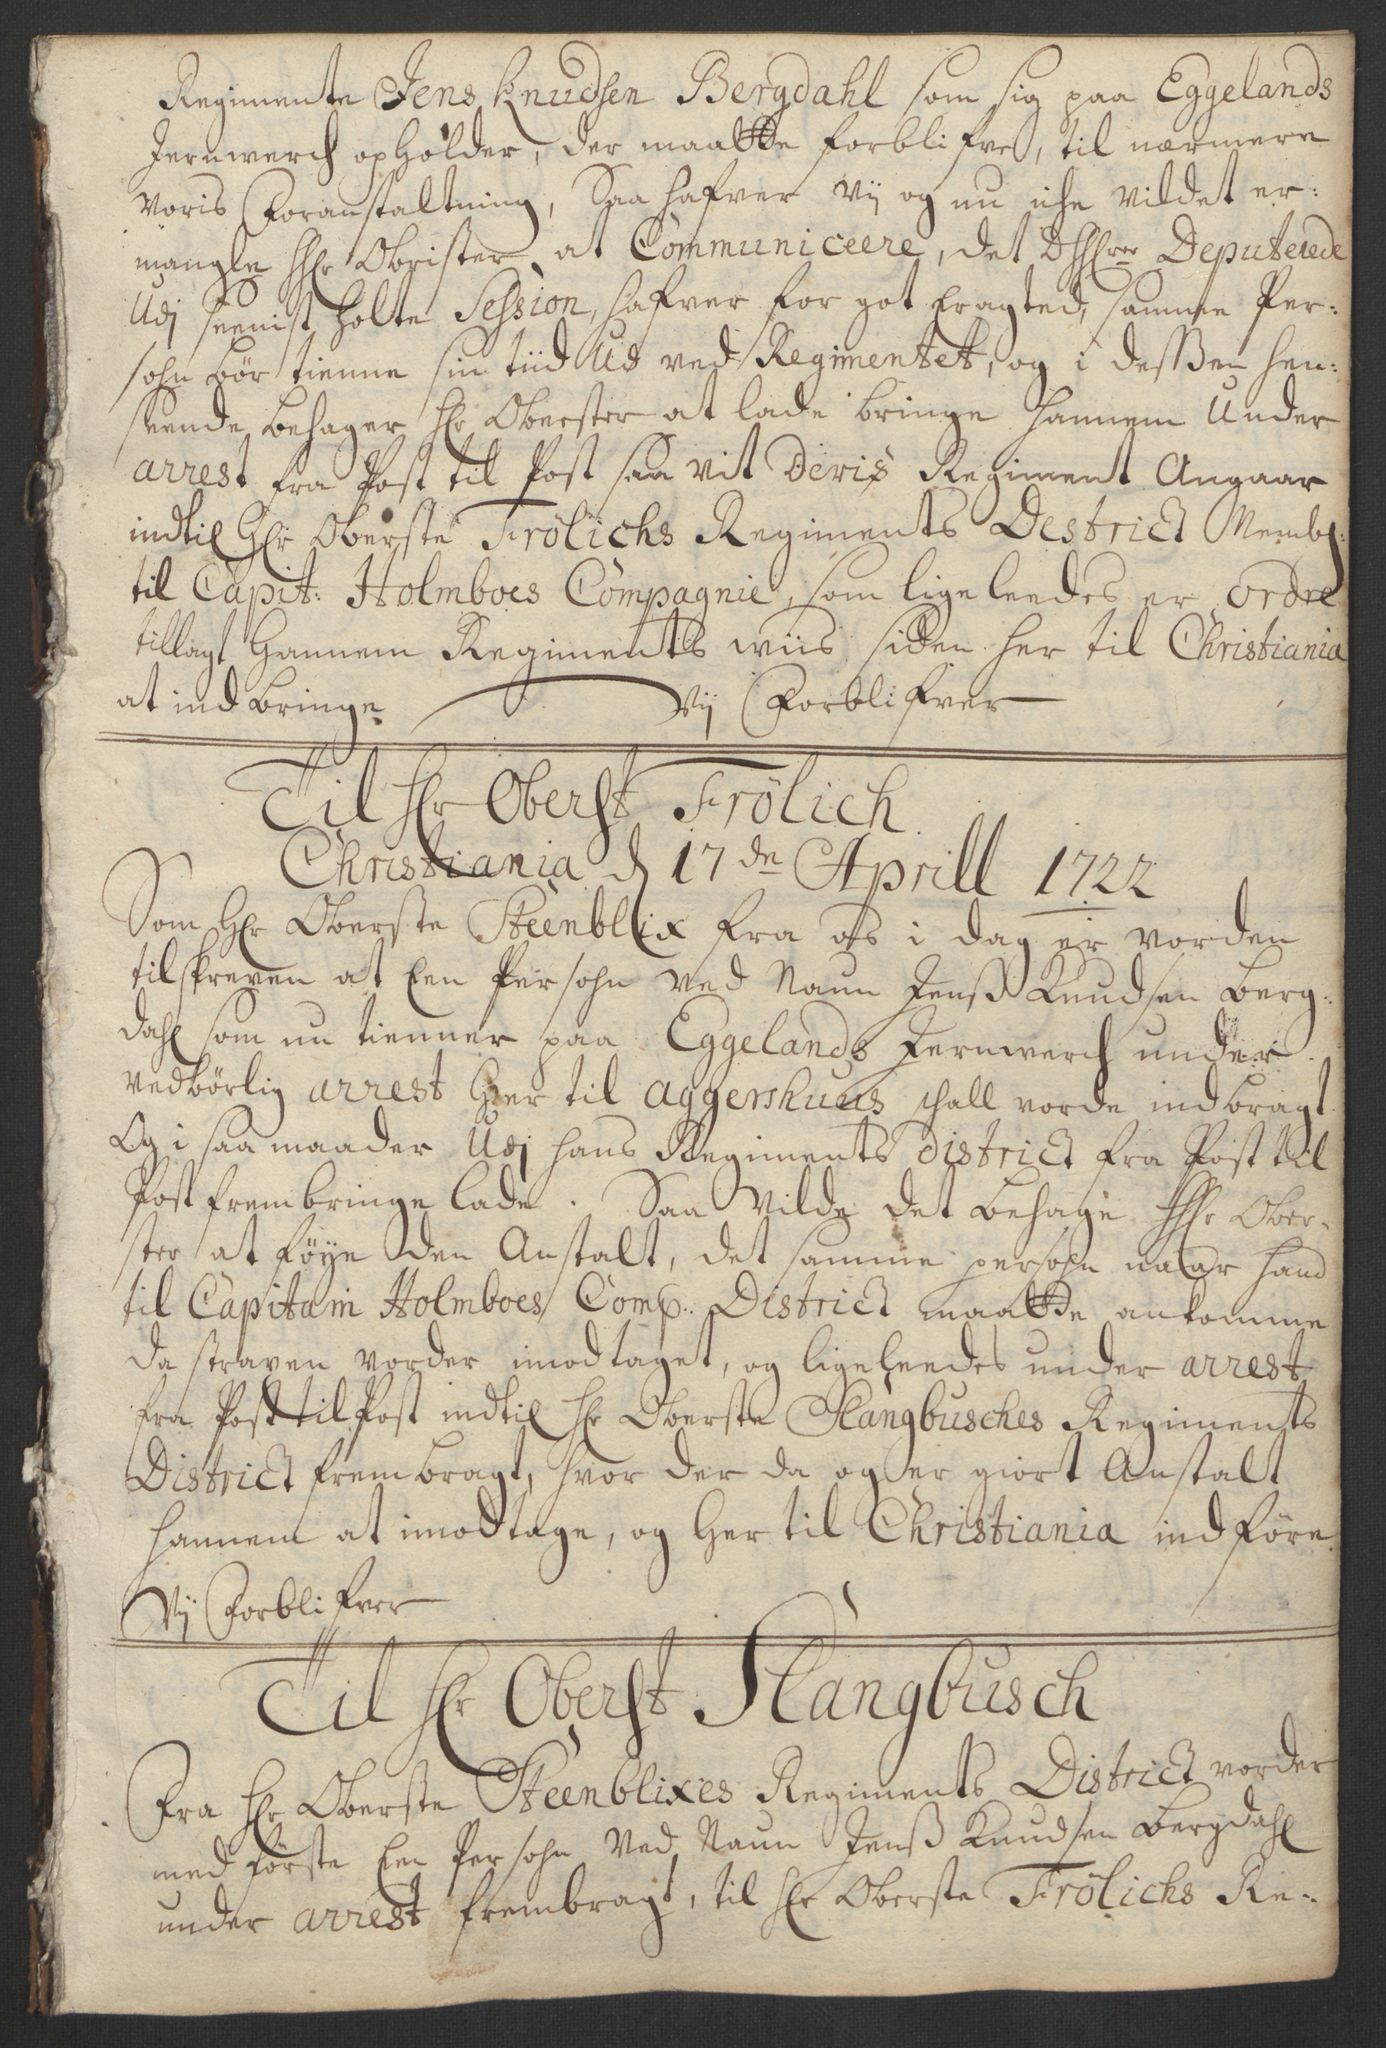 Regimente Jens Knudsen Bergdahl som sig paa Eggelands
Jernwerch opholder, der maatte forblifve, til nærmere
Voris Foranstaltning, Saa hafver Vij og nu iche vildet er:
mangle Hr Obrister at Communiceere, det Deputerede
Udj seenist holte Session, hafver for got Eragted, samme Per:
sohn bør tienne sin tiid Ud ved Regimentet, og i desßen hen:
seende behager Hr Oberster at lade bringe hannem Under
arrest fra Post til Post saa vit Deris Regiment Angaar
indtil Hr Oberste Frölichs Regiments Destrict Membl:
til Capit: Holmboes Compagnie, som ligeleedes er ordre
tillagt hannem Regiments wiis siden her til Christiania
at indbringe Vij Forblifver
Til Hr Oberst Frölich
Christiania d 17de Aprill 1722
Som Hr Oberste Steenblix fra os i dag er vorden
tilskreven at Een Persohn ved Naun Jenß Knudsen Berg:
dahl som nu tienner paa Eggelands Jernwerch under
vedbörlig arrest her til Aggershuus schall vorde indbragt
Og i saa maader Udj hans Regiments District fra Post til
Post frembringe lade. Saa Vilde det behage Hr Ober:
ster at föye den Anstalt, det samme persohn naar hand
til Capitain Holmboes Comp: District maatte ankomme
da straxen vorder imodtaget, og ligeleedes under arrest
fra Post til Post indtil Hr Oberste Slangbusches Regiments
District frembragt, hvor der da og er giort Anstalt
hannem at imodtage, og her til Christiania indföre.
Vij Forblifver
Til Hr Oberst Slangbusch
Fra Hr Oberste Steenblixes Regiments District vorder
med förste Een Persohn Ved Naun Jenß Knudsen Bergdahl
under arrest frembragt, til Hr Oberste Frölichs Re: